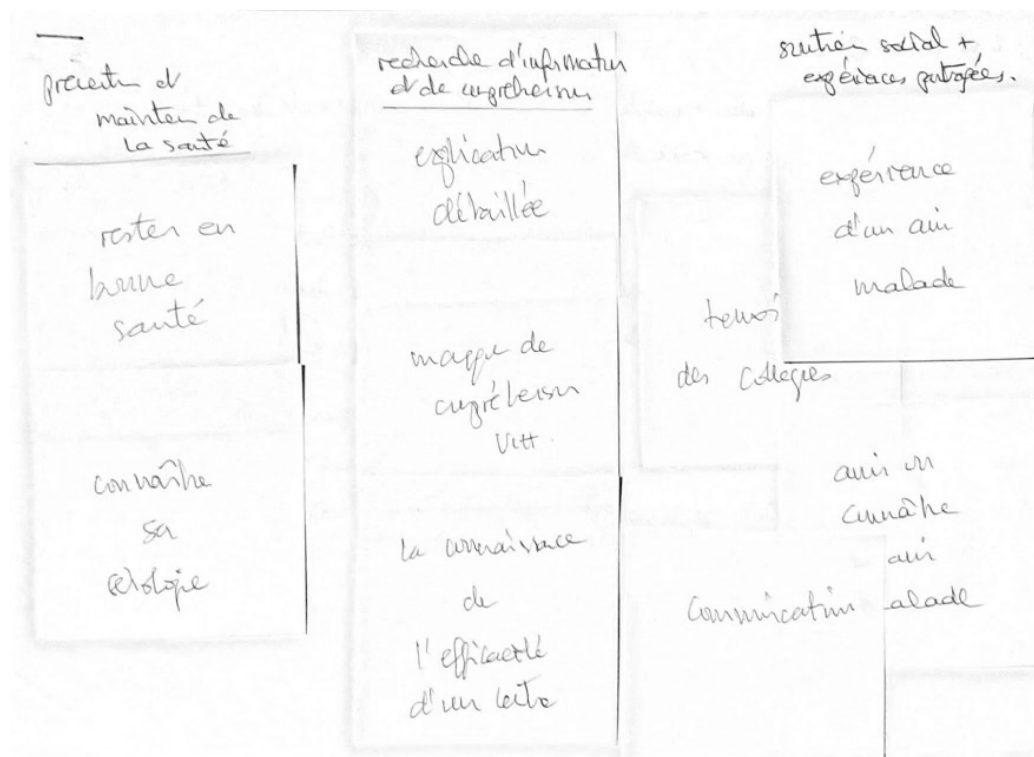 prévention et
maintien de
la santé
rester en
bonne
santé
connaître
sa
recherche d'information
et de compréhension
explication
détaillée
manque de
compréhension
la connaissance
de
l'efficacité
d'un
soutien social +
expériences partagées.
expérience
d'un ami
malade
des collègues
connaître
communication